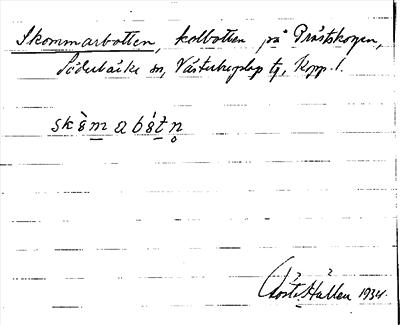 Skommarbotten, kolbotten på Prästskogen,
Söderbärke sn, Västerbergslags tg, Kopp. l.
skŏ̀mabót́n̥
Gösta Hallen 1934.